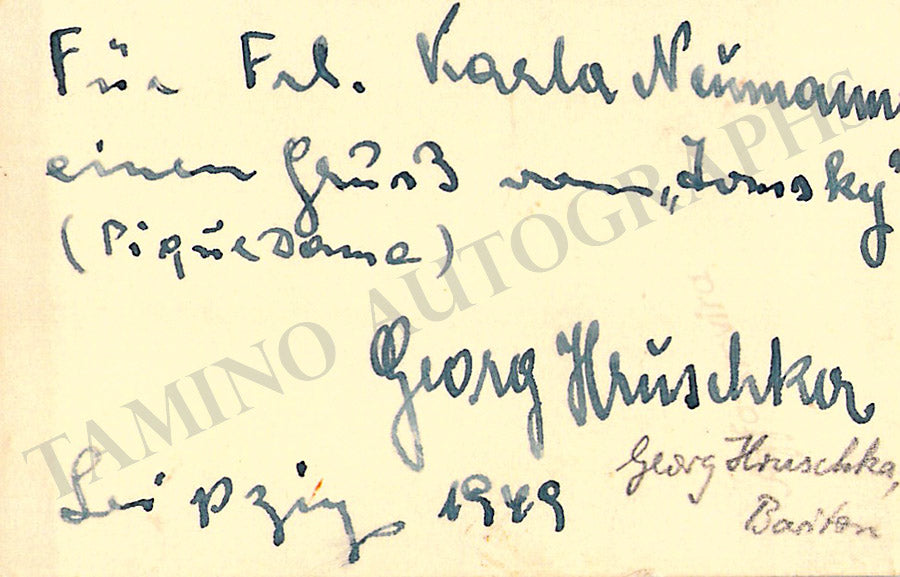 Für Frl. Karla Neumann
einen Gruß vom „Tomsky"
(Pique Dame)
Georg Hruschka
Leipzig 1949
Georg Hruschka,
Bariton
TAMINO AUTOGRAPHS